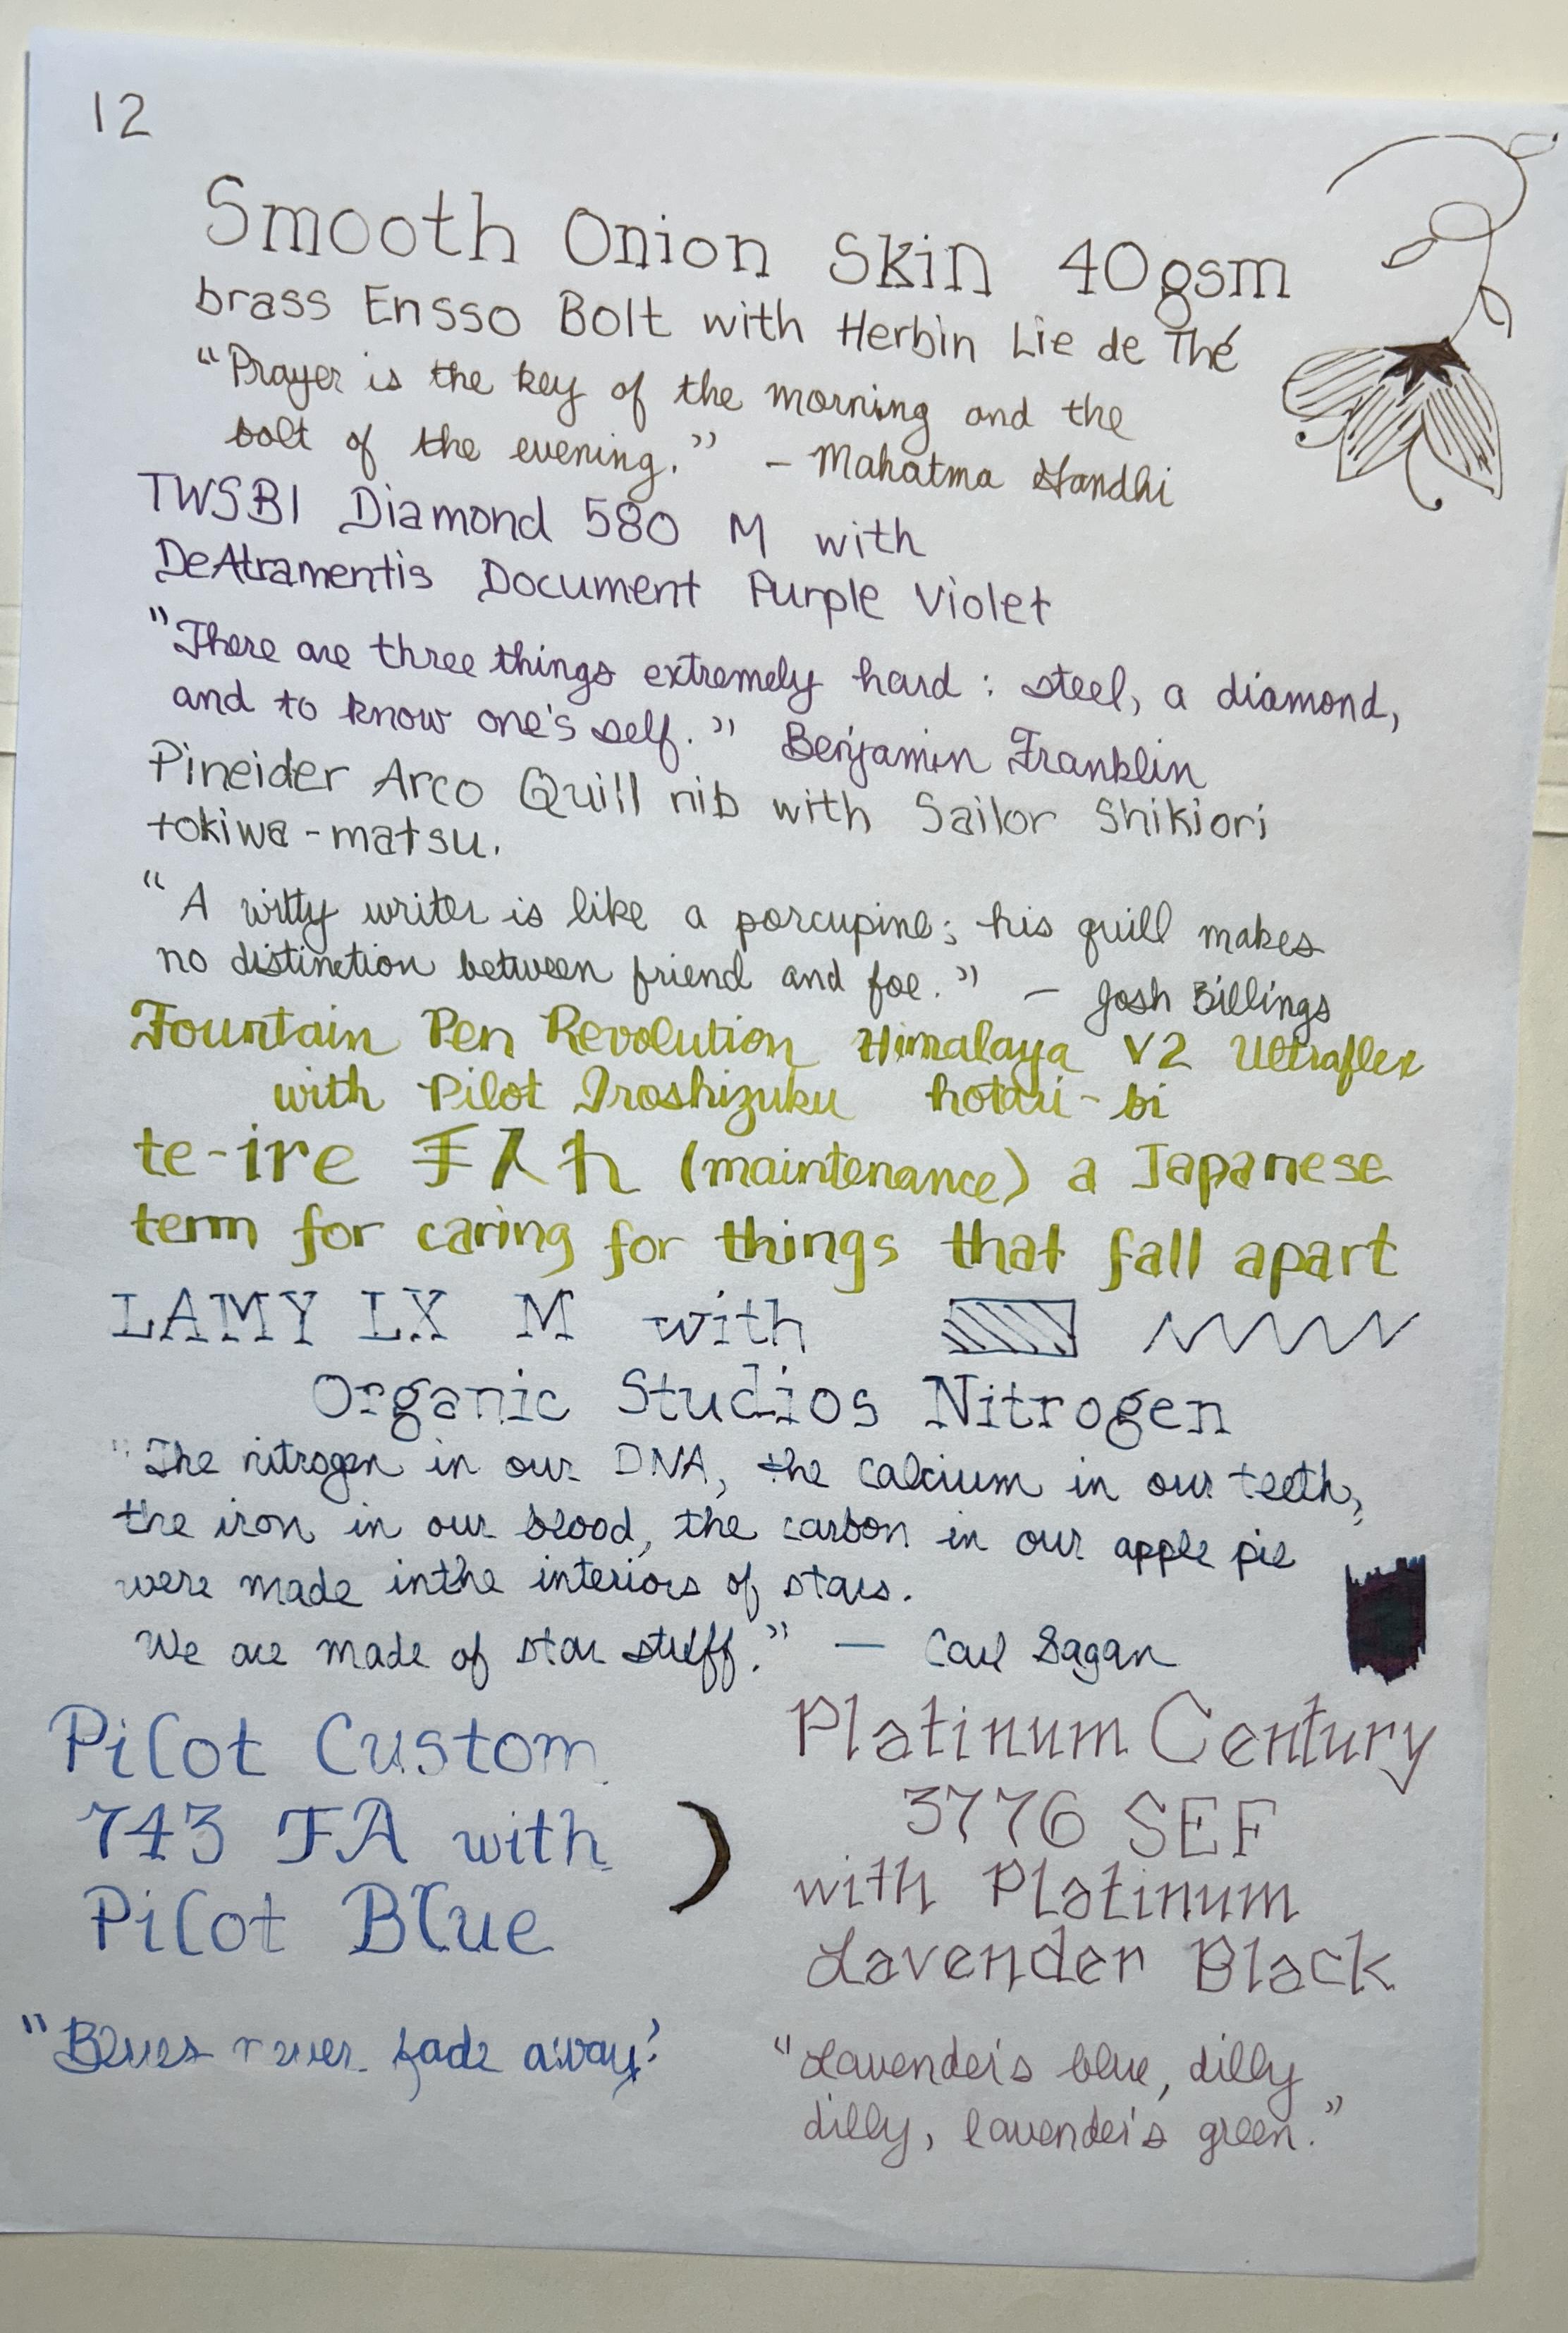 12
Smooth Onion Skin 40gsm
brass Ensso Bolt with Herbin Lie de Thé
"Prayer is the key of the morning and the
bolt of the evening." - Mahatma Gandhi
TWSBI Diamond 580 M with
DeAtramentis Document Purple Violet
"There are three things extremely hard: steel, a diamond,
and to know one's self." Benjamin Franklin
Pineider Arco Quill nib with Sailor Shikiori
tokiwa-matsu.
"A witty writer is like a porcupine; his quill makes
no distinction between friend and foe." - Josh Billings
Fountain Pen Revolution Himalaya V2 Ultraflex
with Pilot Iroshizuku hotaru-bi
te-ire 手入れ (maintenance) a Japanese
term for caring for things that fall apart
LAMY LX M with
Organic Studios Nitrogen
"The nitrogen in our DNA, the calcium in our teeth,
the iron in our blood, the carbon in our apple pie
were made inthe interiors of stars.
We are made of star stuff." - Carl Sagan
Pilot Custom
743 FA with
Pilot Blue
"Blues never fade away."
Platinum Century
3776 SEF
with Platinum
Lavender Black
"Lavender's blue, dilly
dilly, lavender's green."